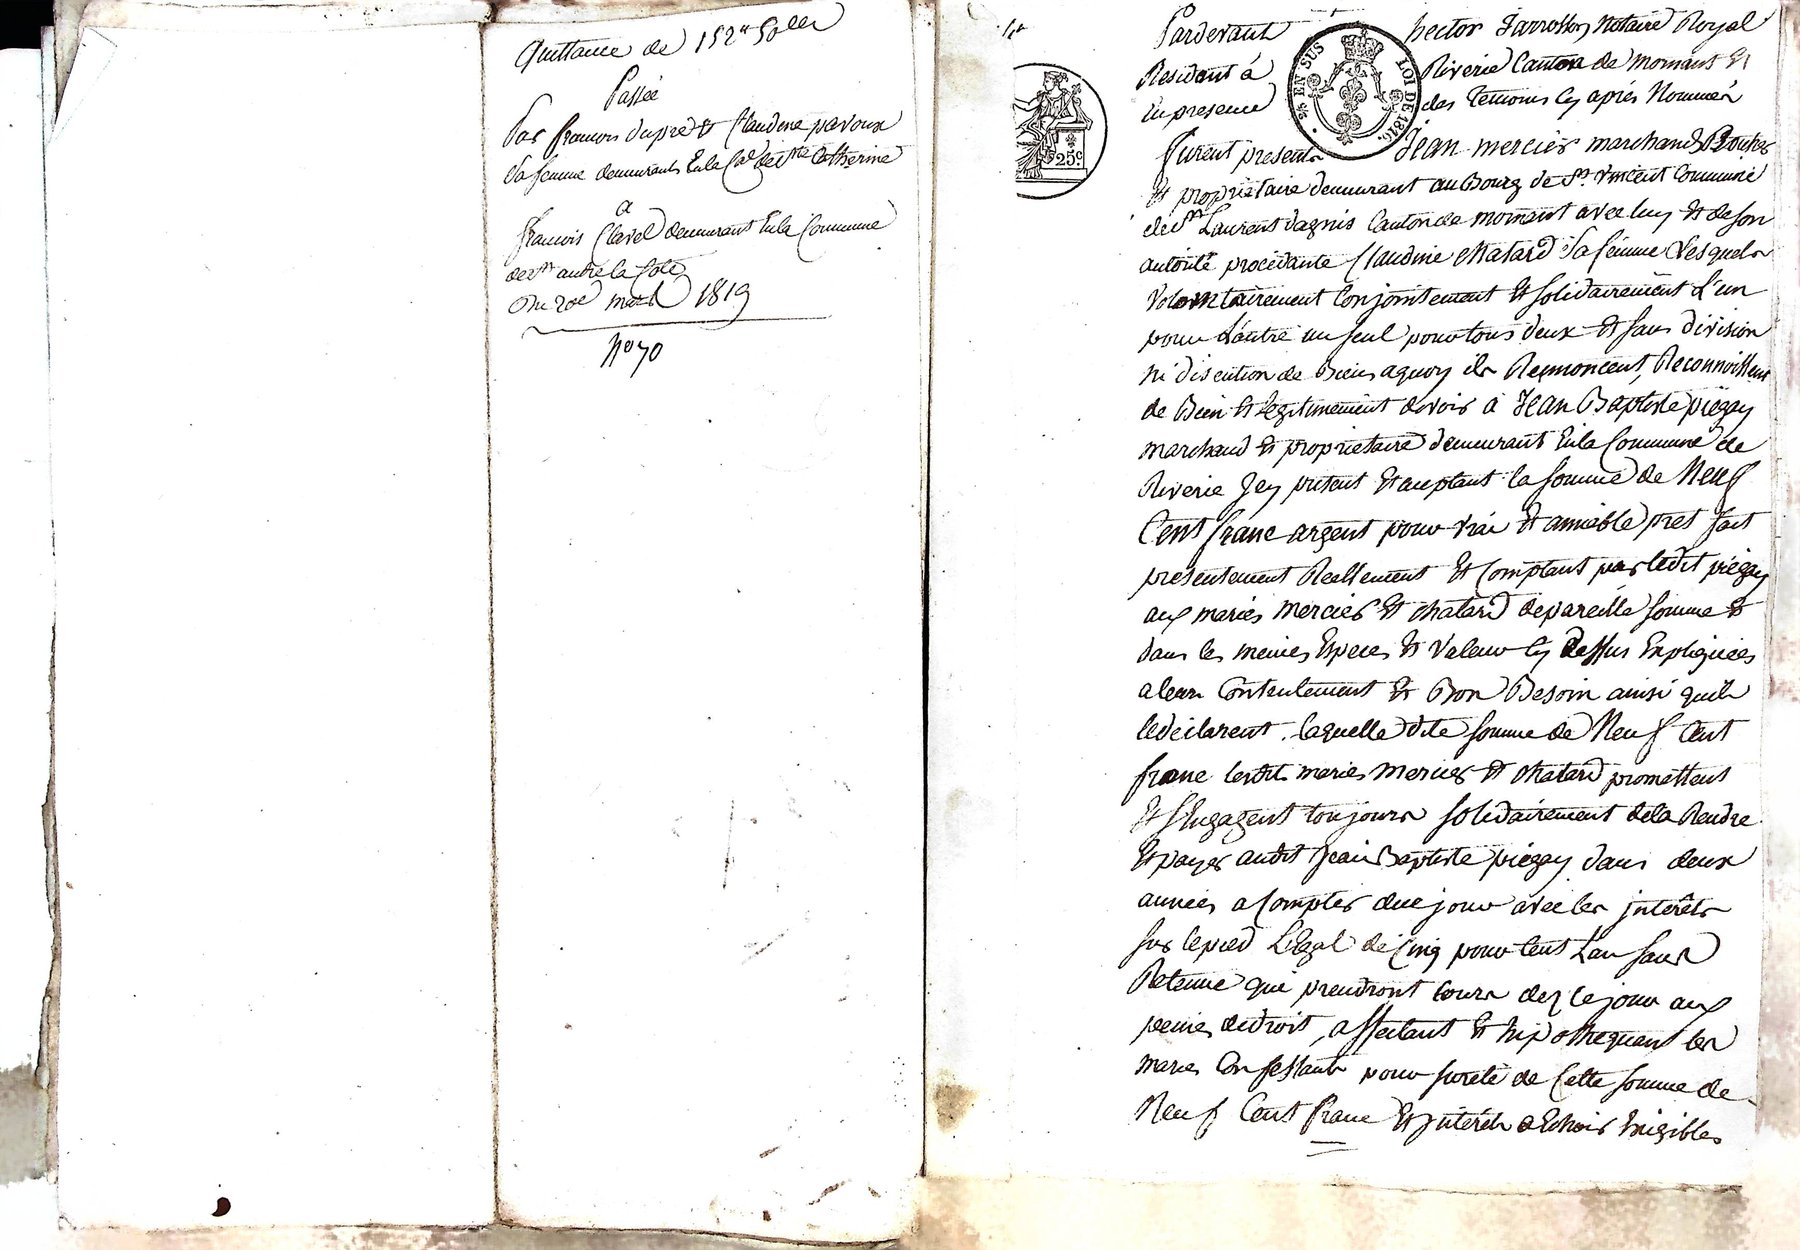 Quittance de 152" 50 c
Passée
Par francois dupré & Claudine pavoux
Sa femme demeurants En la Com de Ste Catherine
a
francois Clavel demeurant En la Commune
de St andré la Cote
Du 20e mars 1819
No 70
Pardevant hector Farrosson Notaire Royal
Residant à Riverie Canton de Mornant Et
En presence des Temoins Cy après Nommés
2/5 EN SUS LOI DE 1816.
25c
Furent presents Jean mercier marchand
& proprietaire demeurant au Bourg de St Vincent Commune
de St Laurent dagnis Canton de mornant avec luy & de son
autorité procédante Claudine chatard Sa femme Lesquels
Volontairement Conjointement & solidairement L'un
pour L'autre un seul pour tous deux & sans division
ni discution de Biens aquoy ils Renoncent, Reconnoissent
de Bien & légitimement devoir à Jean Baptiste piégay
marchand & proprietaire demeurant En la Commune de
Riverie Jcy présent & aceptant la somme de Neuf
Cent franc argent pour vrai & amiable pret fait
présentement Reellement & Comptant par ledit piégay
aux mariés mercier & chatard de pareille somme &
dans les memes Especes & Valeur Cy dessus Expliquées
a leur Contentement & Bon Besoin ainsi quils
le déclarent. laquelle dite somme de Neuf Cent
franc lesdits maries mercier & chatard promettent
& s'Engagent toujours solidairement de la Rendre
& payer audit Jean Baptiste piégay dans deux
années a Compter de ce jour avec les jntérêts
sur le pied Légal de Cinq pour Cent L'an sans
Retenue qui prendront Cours dez ce jour aux
peines de droit, affectant & hipothequant les
maries Confessants pour sureté de Cette somme de
Neuf Cent franc & jntérêts a Echoir Exigibles